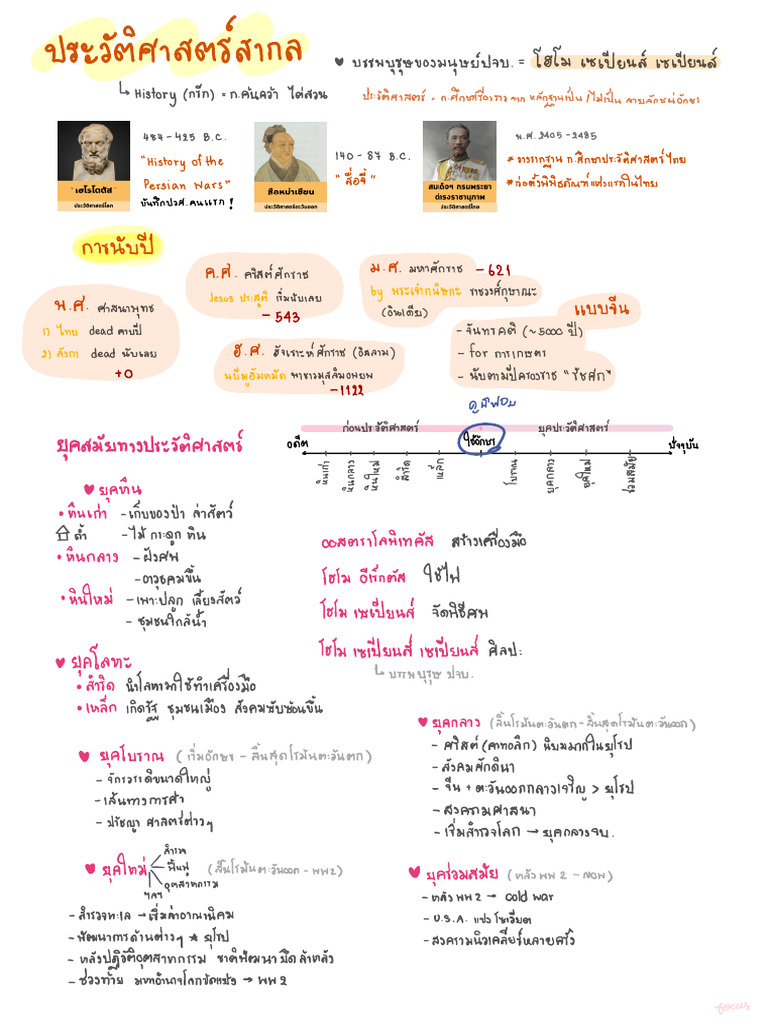 ประวัติศาสตร์สากล
↳ History (กรีก) = ก.ค้นคว้า ไต่สวน
♥ บรรพบุรุษของมนุษย์ปจบ. = โฮโม เซเปียนส์ เซเปียนส์
ประวัติศาสตร์ = ก.ศึกษาเรื่องราวจาก หลักฐานเป็น/ไม่เป็น ลายลักษณ์อักษร
เฮโรโดตัส
ประวัติศาสตร์โลก
484 - 425 B.C.
"History of the
Persian Wars"
บันทึกปวศ.คนแรก!
สือหม่าเชียน
ประวัติศาสตร์ตะวันออก
140 - 87 B.C.
"สื่อจี้"
สมเด็จฯ กรมพระยา
ดำรงราชานุภาพ
ประวัติศาสตร์ไทย
พ.ศ. 2405 - 2485
* วางรากฐาน ก.ศึกษาประวัติศาสตร์ไทย
* ก่อตั้งพิพิธภัณฑ์แห่งแรกในไทย
การนับปี
พ.ศ. ศาสนาพุทธ
1) ไทย dead ครบปี
2) ลังกา dead นับเลย
+0
ค.ศ. คริสต์ศักราช
Jesus ประสูติ เริ่มนับเลย
- 543
ม.ศ. มหาศักราช - 621
by พระเจ้ากนิษกะ ราชวงศ์กุษาณะ
(อินเดีย)
ฮ.ศ. ฮิจเราะห์ศักราช (อิสลาม)
นบีมูฮัมหมัด พาชาวมุสลิมอพยพ
- 1122
แบบจีน
- จันทรคติ (~5000 ปี)
- for การเกษตร
- นับตามปีครองราช "รัชศก"
ยุคสมัยทางประวัติศาสตร์
ภูมิฟอบ
ก่อนประวัติศาสตร์
ใช้อักษร
ยุคประวัติศาสตร์
อดีต
ปัจจุบัน
หินเก่า
หินกลาง
หินใหม่
สำริด
เหล็ก
โบราณ
ยุคกลาง
ยุคใหม่
ร่วมสมัย
♥ ยุคหิน
• หินเก่า - เก็บของป่า ล่าสัตว์
ถ้ำ - ไม้ กระดูก หิน
• หินกลาง - ฝังศพ
- อาวุธคมขึ้น
• หินใหม่ - เพาะปลูก เลี้ยงสัตว์
- ชุมชนใกล้น้ำ
ออสตราโลพิเทคัส สร้างเครื่องมือ
โฮโม อีเร็กตัส ใช้ไฟ
โฮโม เซเปียนส์ จัดพิธีศพ
โฮโม เซเปียนส์ เซเปียนส์ ศิลปะ
↳ บรรพบุรุษ ปจบ.
♥ ยุคโลหะ
• สำริด นำโลหะมาใช้ทำเครื่องมือ
• เหล็ก เกิดรัฐ ชุมชนเมือง สังคมซับซ้อนขึ้น
♥ ยุคโบราณ (เริ่มอักษร - สิ้นสุดโรมันตะวันตก)
- จักรวรรดิขนาดใหญ่
- เส้นทางการค้า
- ปรัชญา ศาสตร์ต่างๆ
♥ ยุคกลาง (สิ้นโรมันตะวันตก - สิ้นสุดโรมันตะวันออก)
- คริสต์ (คาทอลิก) นิยมมากในยุโรป
- สังคมศักดินา
- จีน + ตะวันออกกลางเจริญ > ยุโรป
- สงครามศาสนา
- เริ่มสำรวจโลก → ยุคกลางจบ.
♥ ยุคใหม่ (สิ้นโรมันตะวันออก - WW2)
สำรวจ
ฟื้นฟู
อุตสาหกรรม
ฯลฯ
- สำรวจทะเล → เริ่มล่าอาณานิคม
- พัฒนาการด้านต่างๆ ★ ยุโรป
- หลังปฏิวัติอุตสาหกรรม ชาติพัฒนายึดล้าหลัง
- ช่วงท้าย มหาอำนาจโลกขัดแย้ง → WW 2
♥ ยุคร่วมสมัย (หลัง WW 2 - NOW)
- หลัง WW 2 → cold war
- U.S.A. แข่ง โซเวียต
- สงครามนิวเคลียร์หลายครั้ง
focus